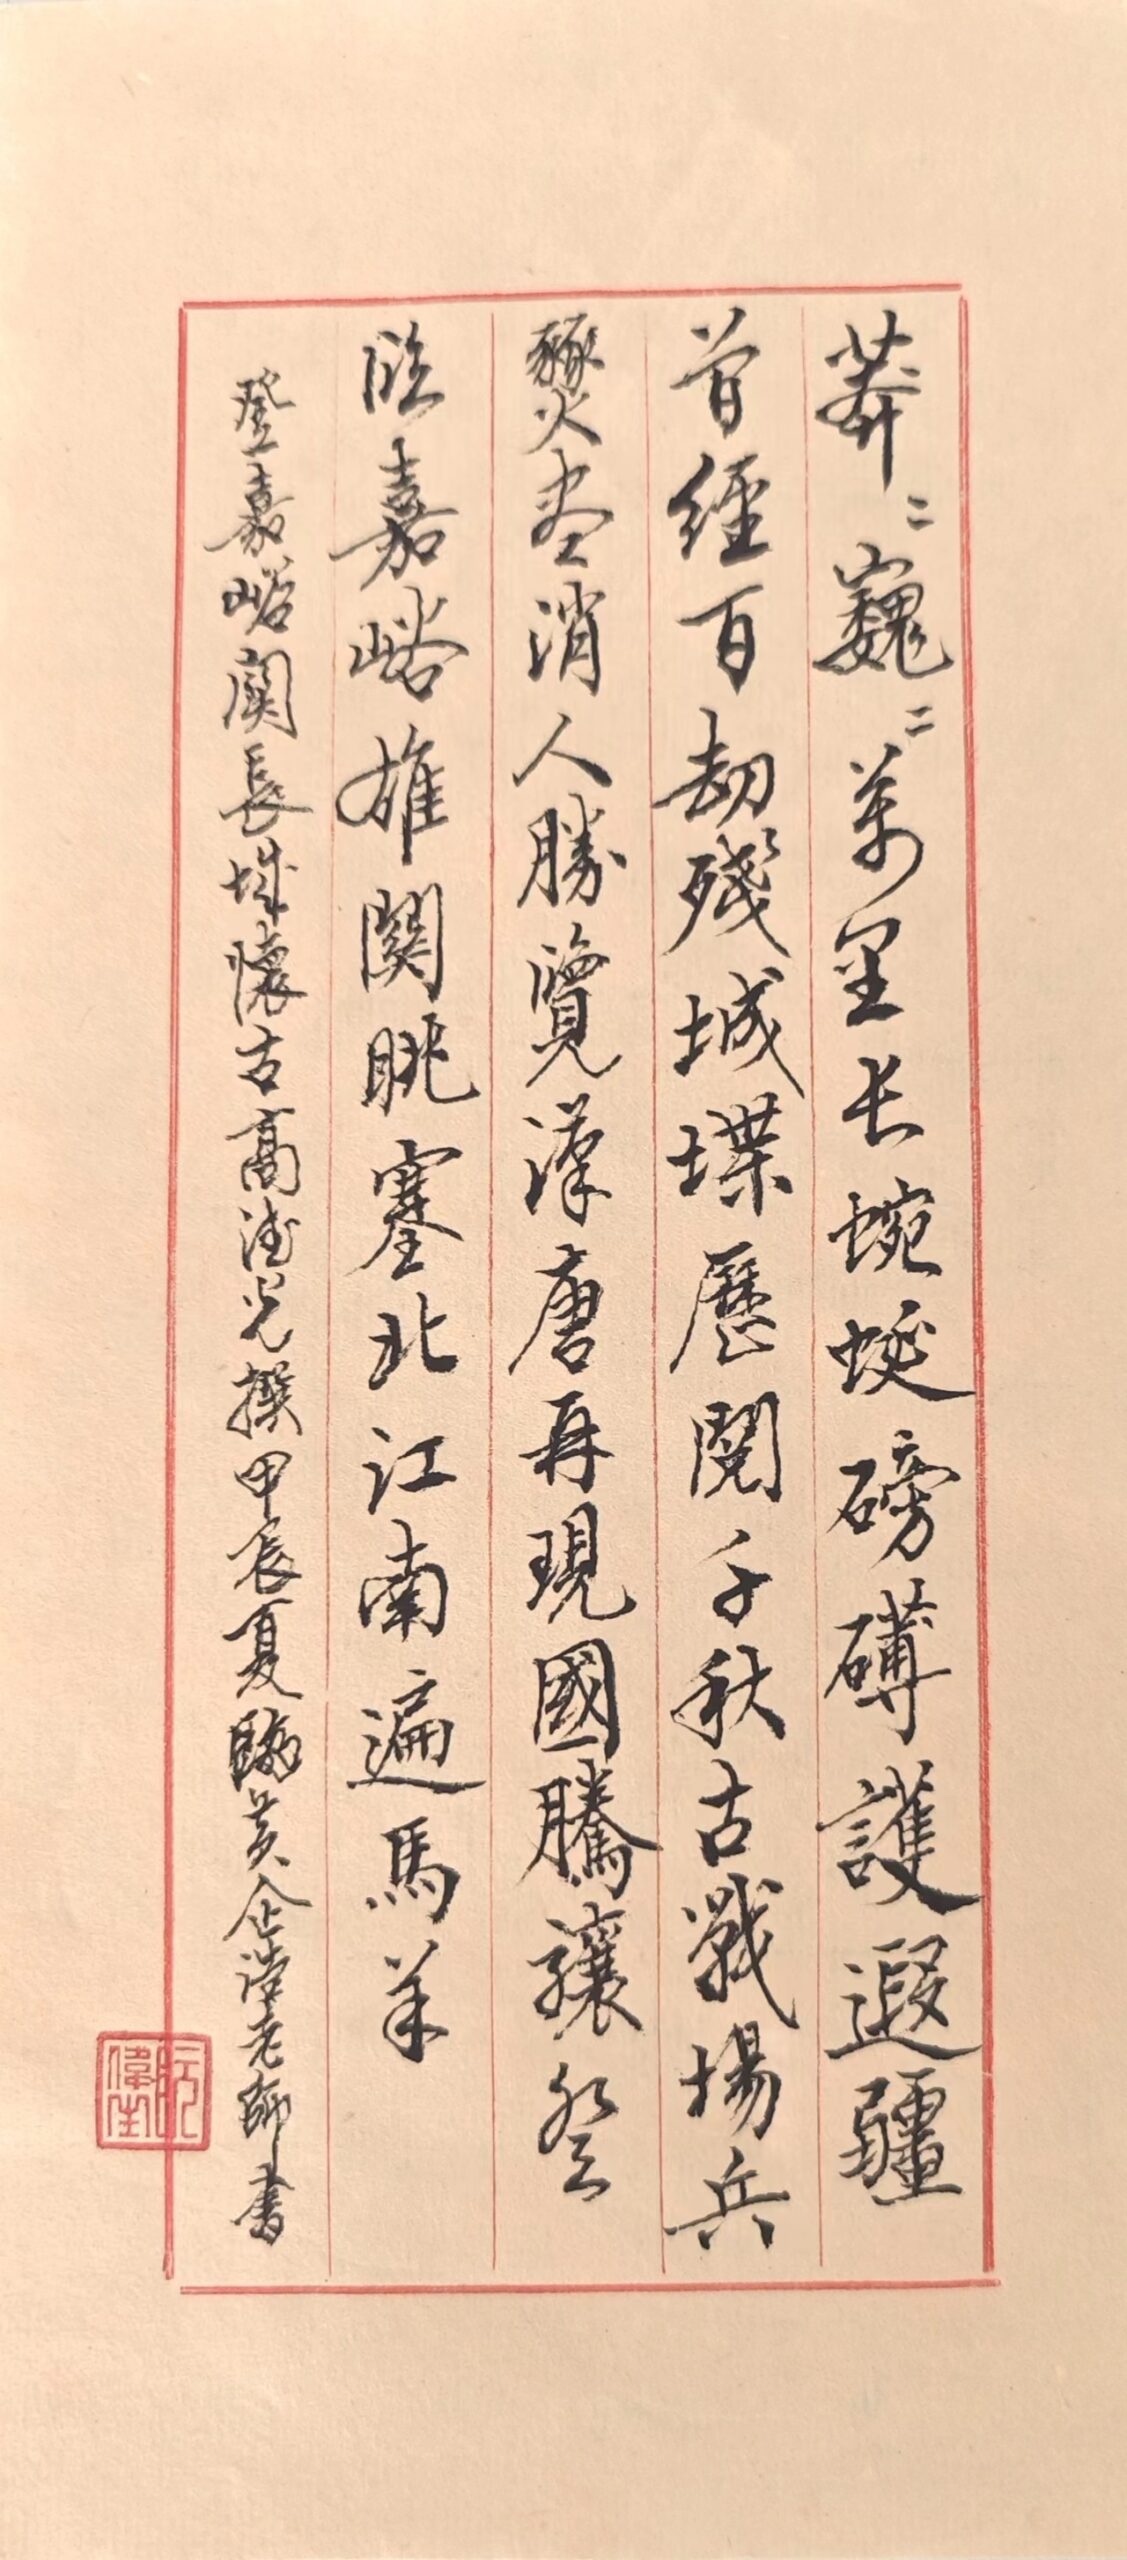 莽二巍二萬里长蜿蜒磅礴護遐疆
曾經百劫殘城堞歷閱千秋古戰場兵
燹盡消人勝覽漢唐再現國騰驤登
臨嘉峪雄關眺塞北江南遍馬羊
登嘉峪關長城懷古高德光撰甲辰夏臨黃企堂老師書